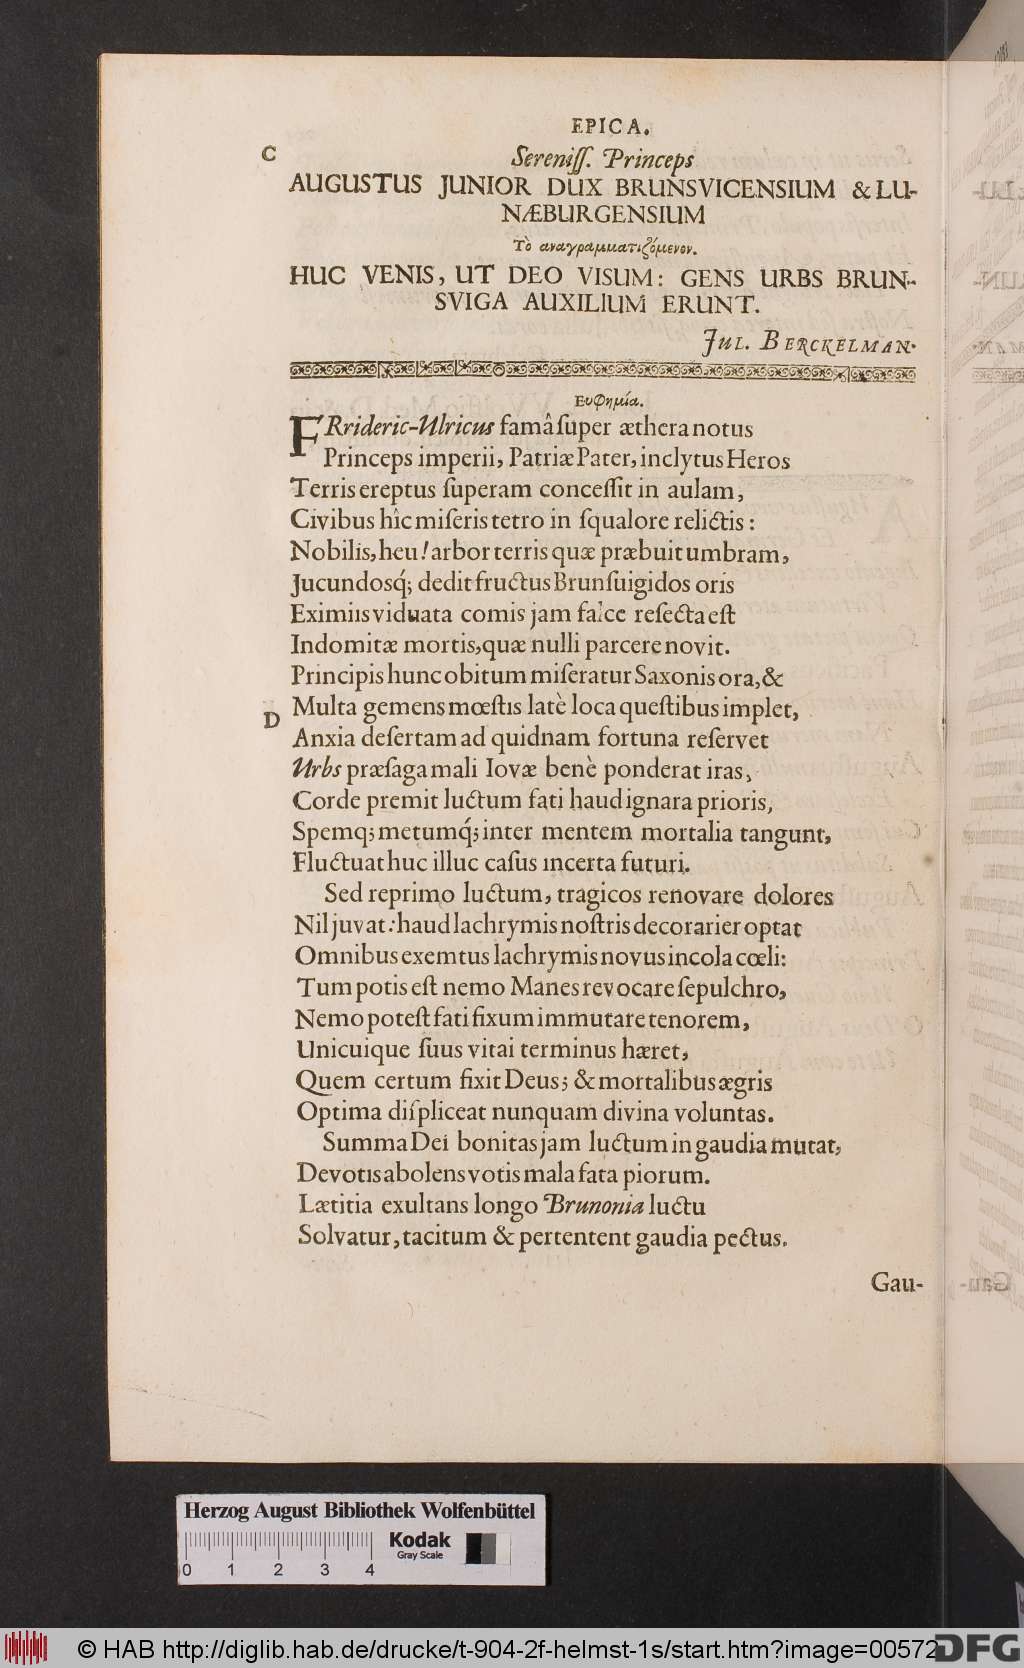 EPICA.
C
Sereniſſ. Princeps
AUGUSTUS JUNIOR DUX BRUNSVICENSIUM & LU-
NÆBURGENSIUM
Τὸ αναγραμματιζόμενον.
HUC VENIS, UT DEO VISUM: GENS URBS BRUN-
SVIGA AUXILIUM ERUNT.
JUL. BERCKELMAN.
Ευφημία.
FRrideric-Ulricus famâ ſuper æthera notus
Princeps imperii, Patriæ Pater, inclytus Heros
Terris ereptus ſuperam conceſſit in aulam,
Civibus hîc miſeris tetro in ſqualore relictis:
Nobilis, heu! arbor terris quæ præbuit umbram,
Jucundosq́; dedit fructus Brunſuigidos oris
Eximiis viduata comis jam falce reſecta eſt
Indomitæ mortis, quæ nulli parcere novit.
Principis hunc obitum miſeratur Saxonis ora, &
D
Multa gemens mœſtis latè loca queſtibus implet,
Anxia deſertam ad quidnam fortuna reſervet
Urbs præſaga mali Iovæ benè ponderat iras,
Corde premit luctum fati haud ignara prioris,
Spemq; metumq́; inter mentem mortalia tangunt,
Fluctuat huc illuc caſus incerta futuri.
Sed reprimo luctum, tragicos renovare dolores
Nil juvat: haud lachrymis noſtris decorarier optat
Omnibus exemtus lachrymis novus incola cœli:
Tum potis eſt nemo Manes revocare ſepulchro,
Nemo poteſt fati fixum immutare tenorem,
Unicuique ſuus vitai terminus hæret,
Quem certum fixit Deus; & mortalibus ægris
Optima diſpliceat nunquam divina voluntas.
Summa Dei bonitas jam luctum in gaudia mutat,
Devotis abolens votis mala fata piorum.
Lætitia exultans longo Brunonia luctu
Solvatur, tacitum & pertentent gaudia pectus.
Gau-
Herzog August Bibliothek Wolfenbüttel
Kodak
Gray Scale
0 1 2 3 4
© HAB http://diglib.hab.de/drucke/t-904-2f-helmst-1s/start.htm?image=00572
DFG